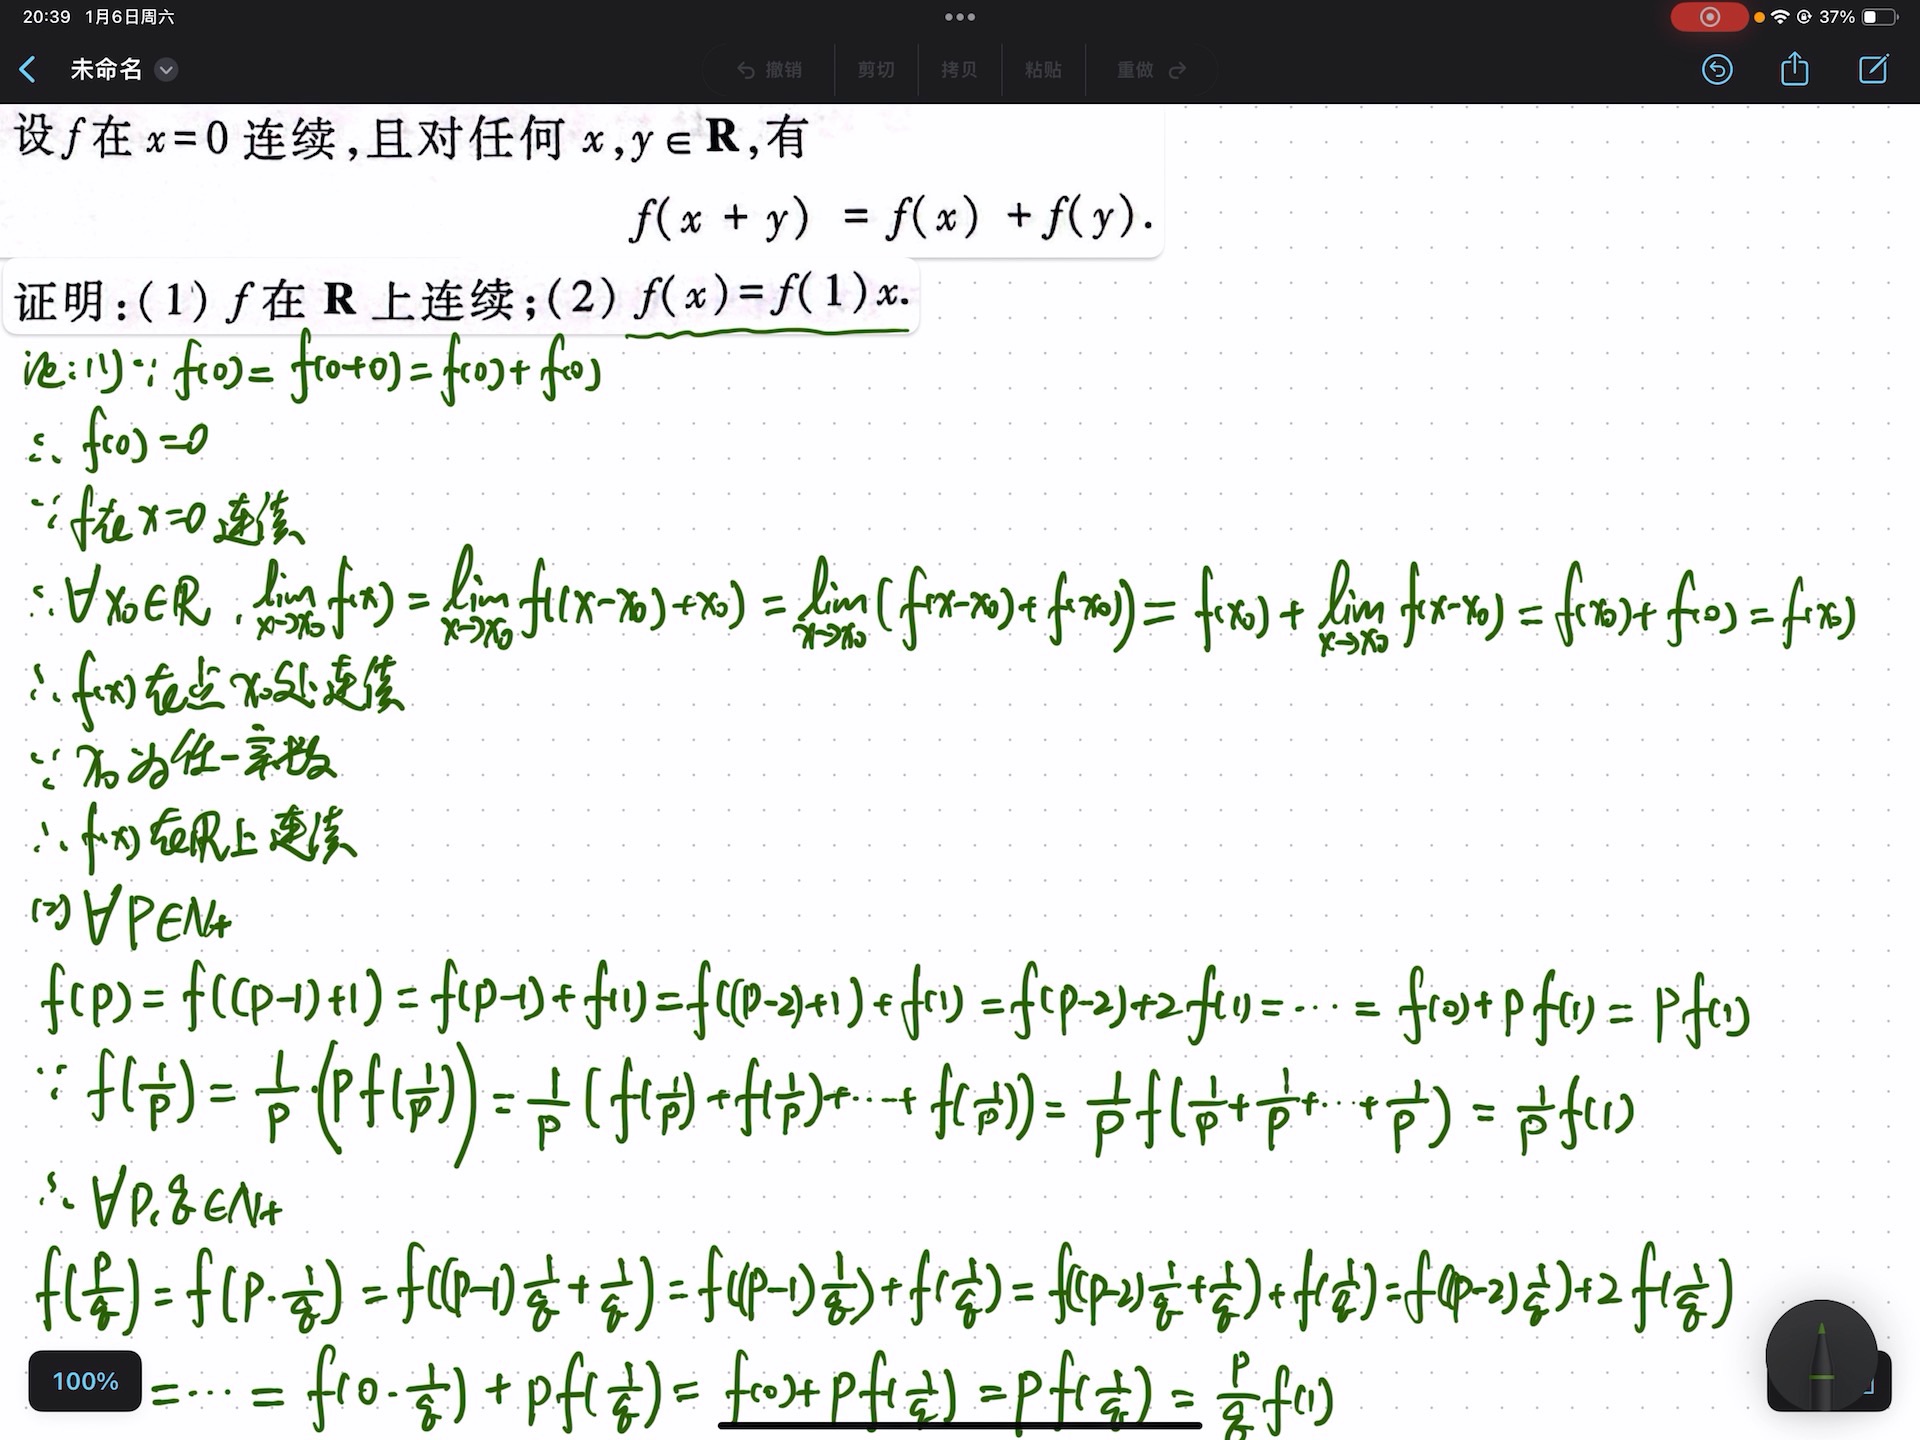 20:39 1月6日周六 37%
未命名 撤销 剪切 拷贝 粘贴 重做
设f在x=0连续,且对任何x,y∈R,有
f(x + y) = f(x) + f(y).
证明:(1) f在R上连续;(2) f(x)=f(1)x.
证:(1) ∵ f(0) = f(0+0) = f(0) + f(0)
∴ f(0) =0
∵ f在x=0连续
∴ ∀x₀∈R, lim_{x→x₀} f(x) = lim_{x→x₀} f((x-x₀)+x₀) = lim_{x→x₀} (f(x-x₀)+f(x₀)) = f(x₀) + lim_{x→x₀} f(x-x₀) = f(x₀) + f(0) = f(x₀)
∴ f(x)在点x₀处连续
∵ x₀为任一实数
∴ f(x)在R上连续
(2) ∀p∈N₊
f(p) = f((p-1)+1) = f(p-1) + f(1) = f((p-2)+1) + f(1) = f(p-2)+2f(1) = ··· = f(0)+pf(1) = pf(1)
∵ f(1/p) = 1/p·(pf(1/p)) = 1/p (f(1/p)+f(1/p)+···+f(1/p)) = 1/p f(1/p+1/p+···+1/p) = 1/p f(1)
∴ ∀p,q∈N₊
f(p/q) = f(p·1/q) = f((p-1)1/q + 1/q) = f((p-1)1/q)+f(1/q) = f((p-2)1/q+1/q)+f(1/q) = f((p-2)1/q)+2f(1/q)
100% = ··· = f(0·1/q) + pf(1/q) = f(0)+pf(1/q) = pf(1/q) = p/q f(1)